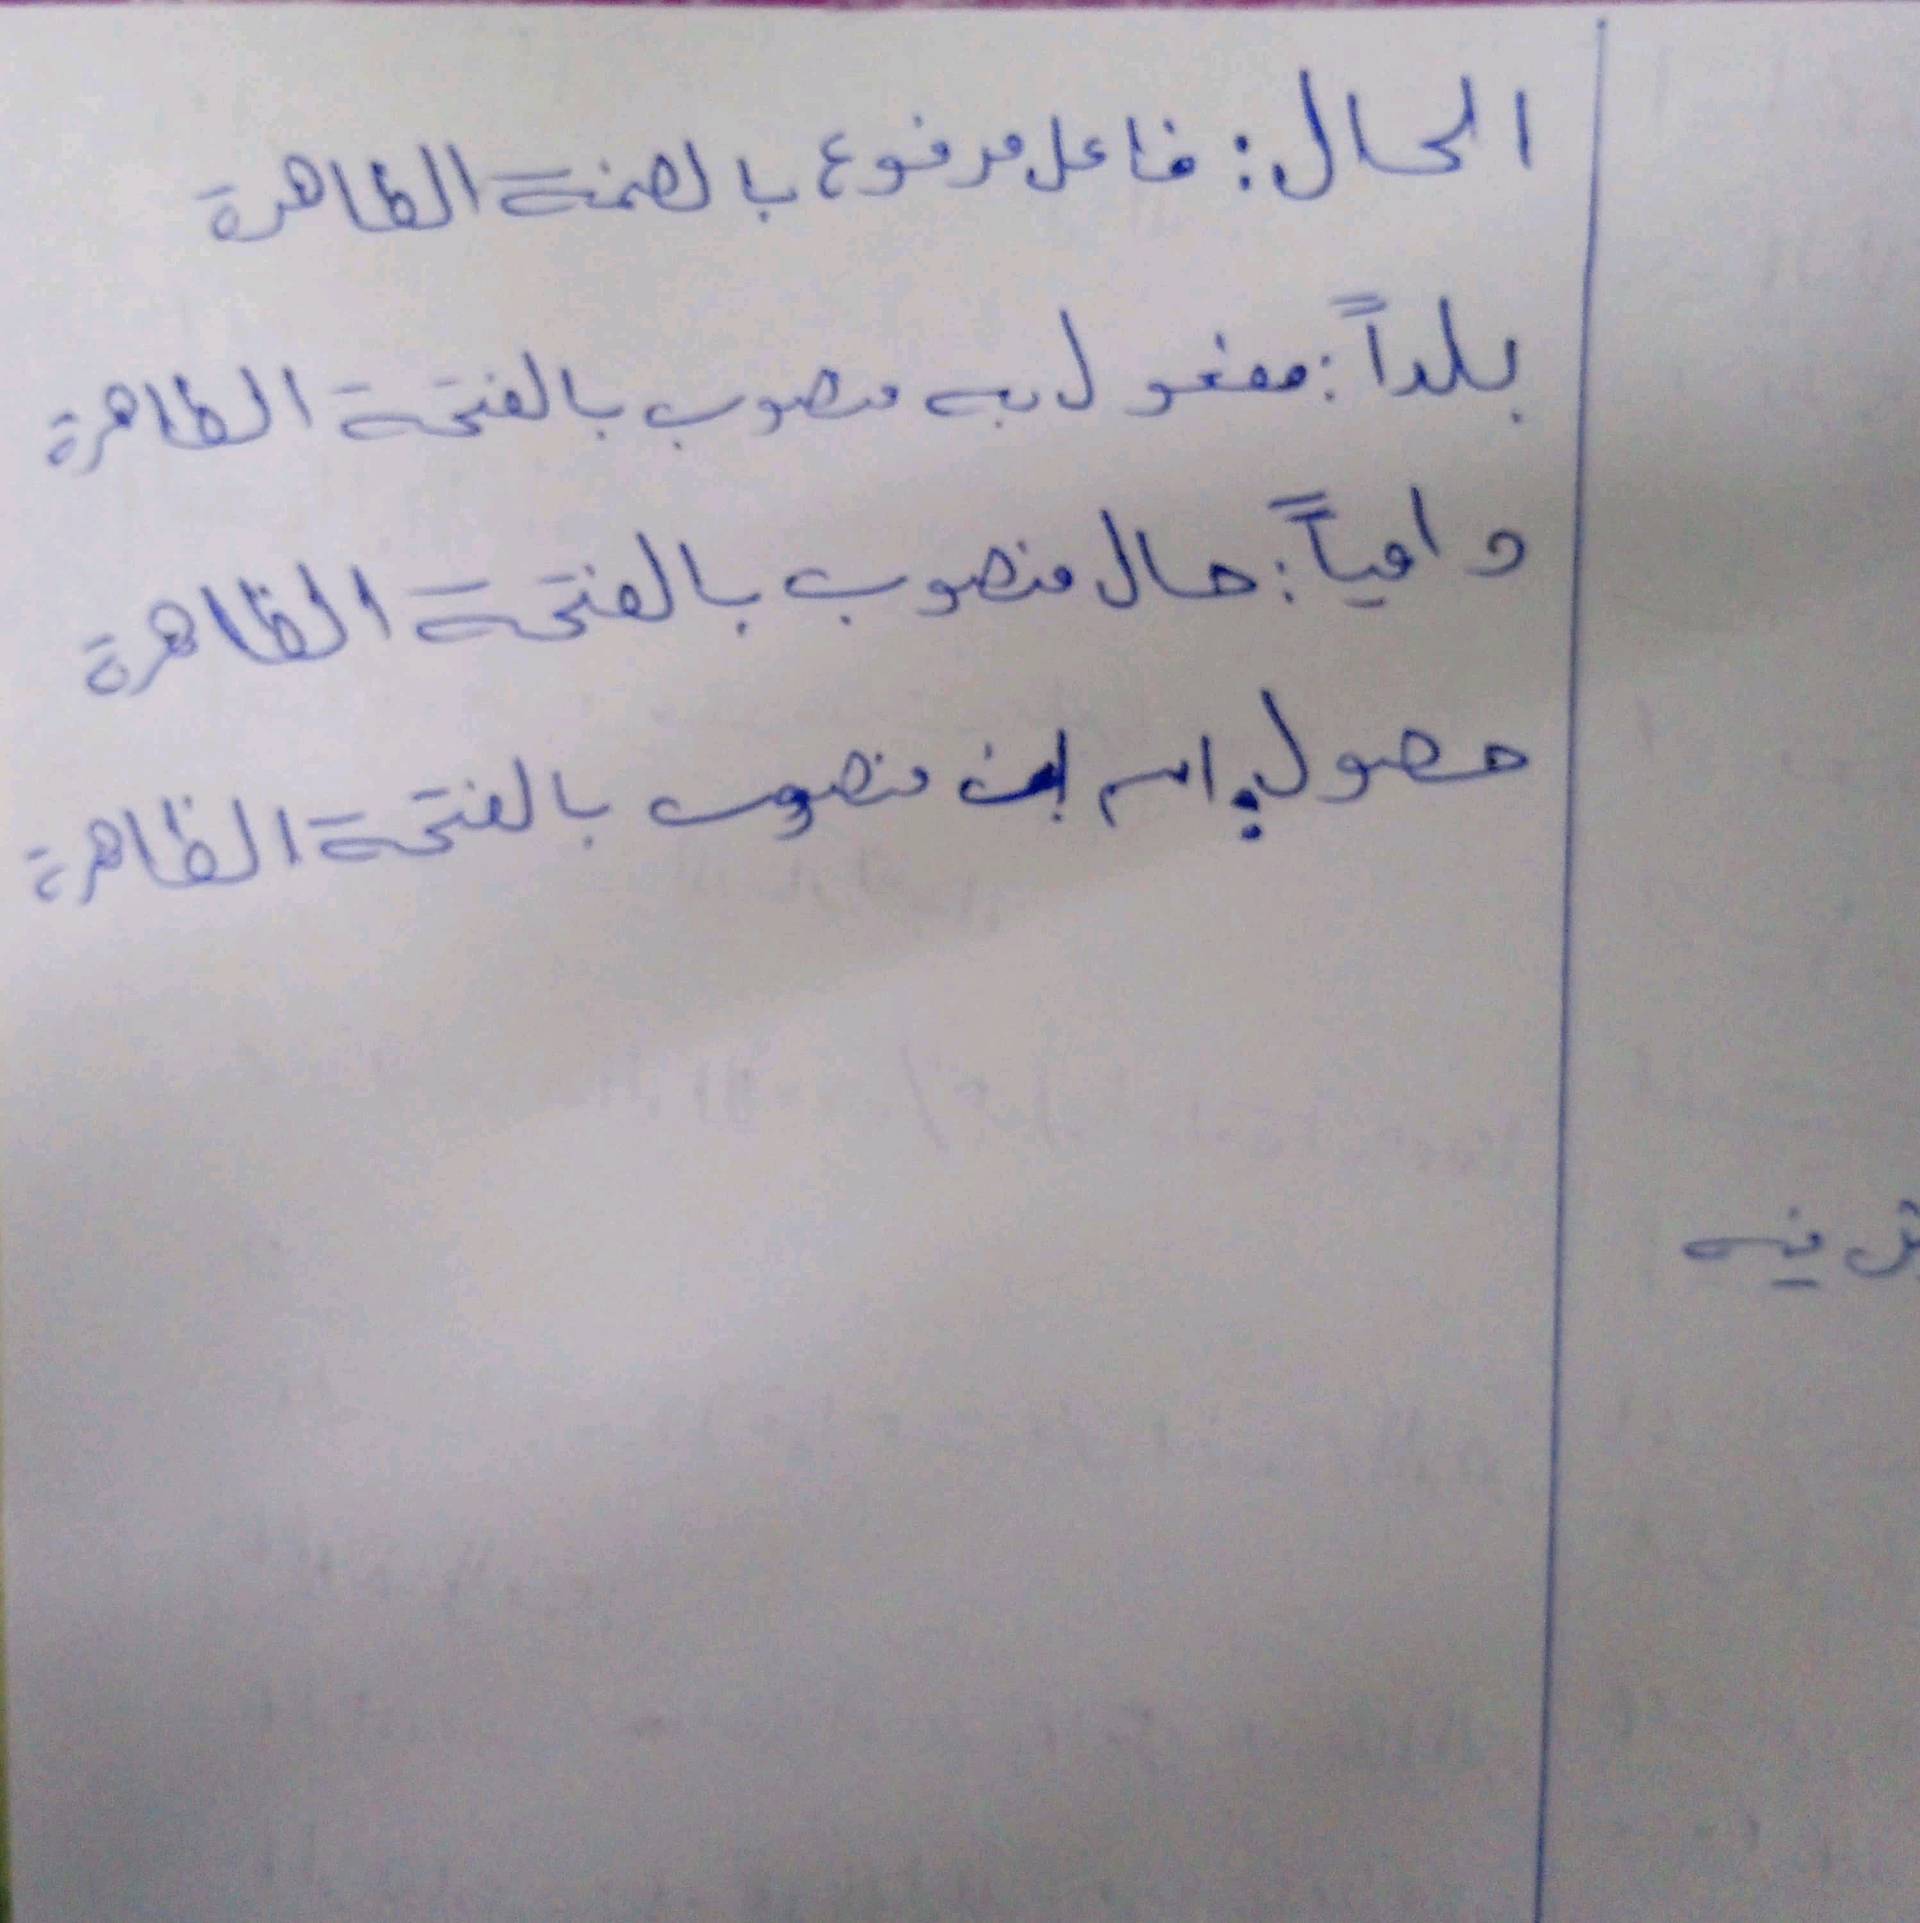 الحال: فاعل مرفوع بالضمة الظاهرة
بلداً: مفعول به منصوب بالفتحة الظاهرة
وافياً: حال منصوب بالفتحة الظاهرة
حصول: اسم إن منصوب بالفتحة الظاهرة
فيه